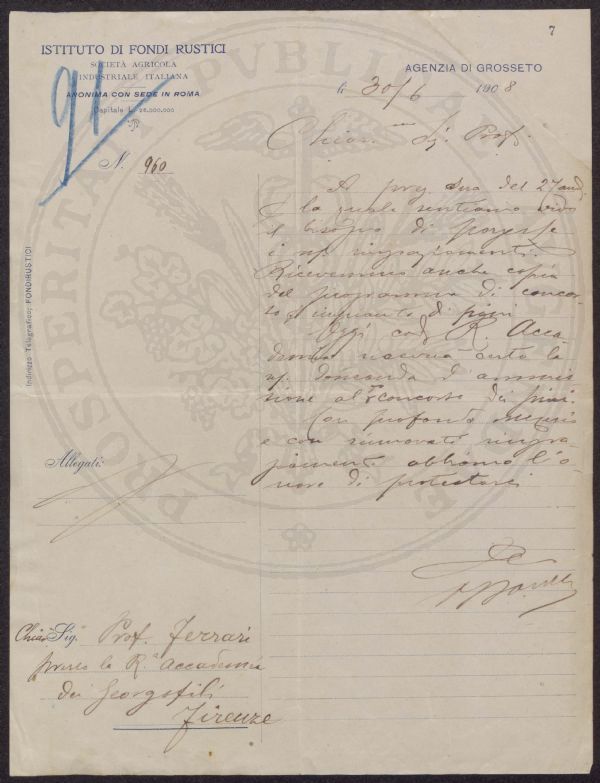 7
ISTITUTO DI FONDI RUSTICI
SOCIETÀ AGRICOLA
INDUSTRIALE ITALIANA
ANONIMA CON SEDE IN ROMA
Capitale L.
91
AGENZIA DI GROSSETO
li 30/6 1908
N. 960
Chiar.mo Sig. Prof.
A preg. sua del 27 and.
la quale sentiamo vivo
il bisogno di porgerle
i ringraziamenti.
Ricevemmo anche copia
del programma di concor-
so impianto di pini
Oggi R. Acca-
demia riceverà certo la
domanda d'ammis-
sione al concorso dei pini.
Con profondo
e con rinnovati ringra-
ziamenti abbiamo l'o-
nore di protestarci
Indirizzo Telegrafico: FONDIRUSTICI
Allegati:
PROSPERITATI PVBLICAE
Chiar. Sig. Prof. Ferrari
presso la R.a Accademia
dei Georgofili
Firenze